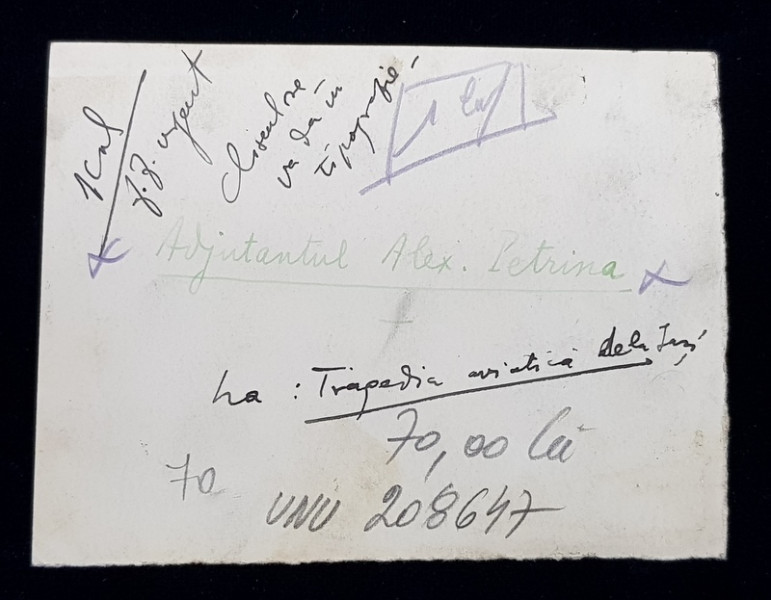 1 col
f.f. urgent
va da în
tipografie
Adjutantul Alex. Petrina
La : Tragedia aviatică dela Iași
70,00 lei
70
UNU 208647